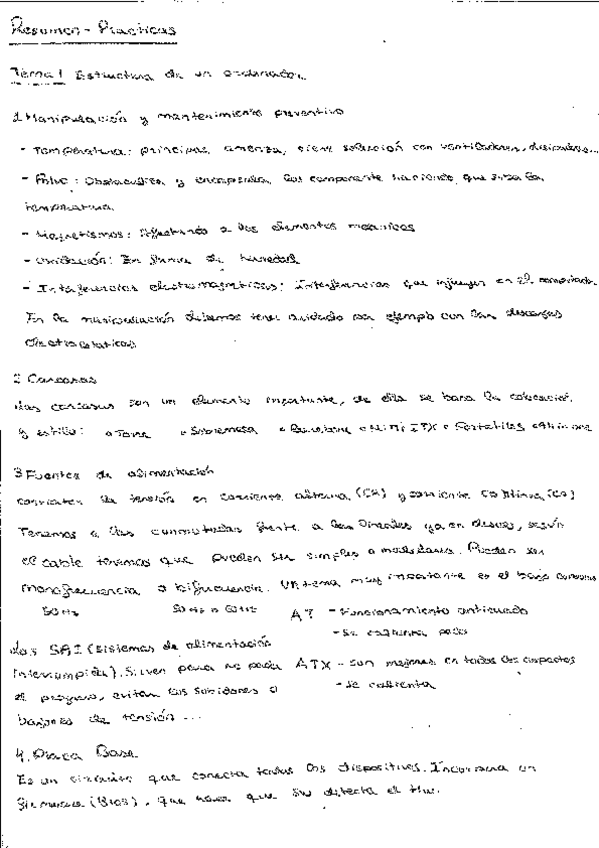 Resumen - Practicas
Tema 1 Estructura de un ordenador.
1 Manipulación y mantenimiento preventivo
- Temperatura: principal amenza, tiene solución con ventiladores, disipadores...
- Polvo: Obstaculiza y encapsula los componente haciendo que suba la
temperatura.
- Magnetismos: Afectando a los elementos mecanicos
- Oxidación: En forma de humedad
- Interferencias electromagneticas: Interferencias que influyen en el computador.
En la manipulación debemos tener cuidado por ejemplo con las descargas
electroestaticas
2 Carcasas
Las carcasas son un elemento importante, de ella se basa la colocacion
y estilo: Torre Sobremesa Barebone Mini ITX Portatiles
3 Fuentes de alimentación
convierten la tensión en corriente alterna (CA) y corriente continua (CC)
Tenemos a las conmutadas frente a las lineales ya en desuso, según
el cable tenemos que pueden ser simples o modulares. Pueden ser
monofrecuencia o bifrecuencia. Un tema muy importante es el bajo consumo
50 Hz 50 Hz o 60 Hz AT - Funcionamiento anticuado
- Se calienta poco
Las SAI (sistemas de alimentación
Interrumpida). Sirven para no perder ATX - son mejores en todos los aspectos
el progreso, evitan las subidones o - se calienta
bajones de tensión ...
4. Placa Base
Es un circuito que conecta todos los dispositivos. Incorpora un
firmware (Bios), que hace que se detecta el Hw.